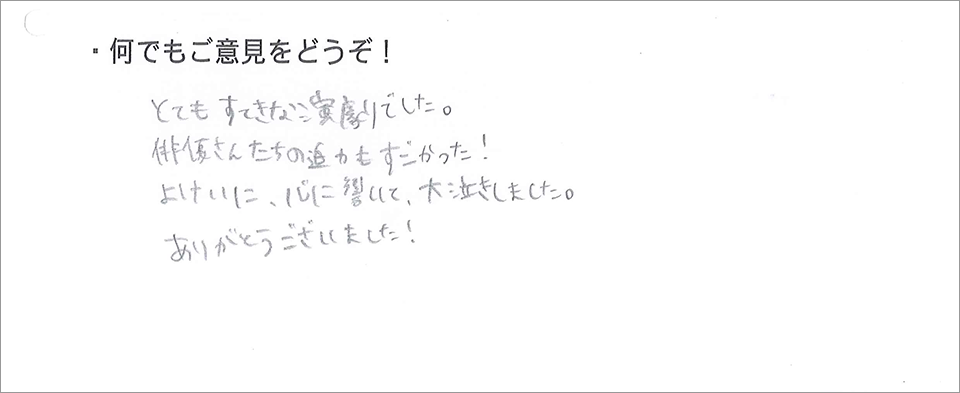 ・何でもご意見をどうぞ！
とてもすてきな演劇でした。
俳優さんたちの迫力もすごかった！
よけいに、心に響いて、大泣きしました。
ありがとうございました！